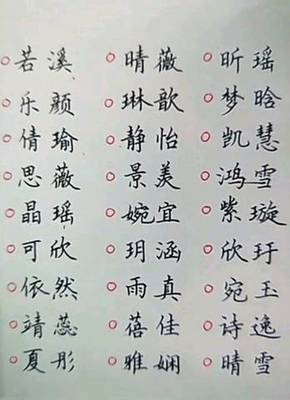 若溪 晴薇 昕瑶
乐颜 琳歆 梦晗
倩瑜 静怡 凯慧
思薇 景美 鸿雪
晶瑶 婉宜 紫璇
可欣 玥涵 欣玗
依然 雨真 宛玉
靖蕊 蓓佳 诗逸
夏彤 雅娴 晴雪